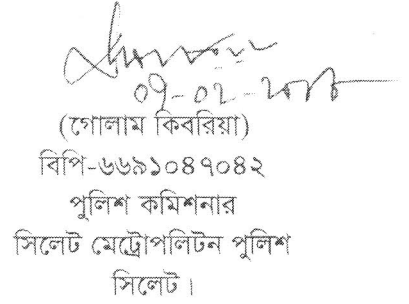 (গোলাম কিবরিয়া)
বিপি-৬৬৯১০৪৭০৪২
পুলিশ কমিশনার
সিলেট মেট্রোপলিটন পুলিশ
সিলেট।